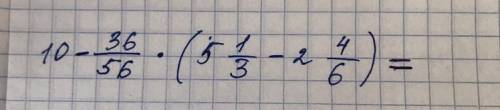 10 - 36/56 · (5 1/3 - 2 4/6) =